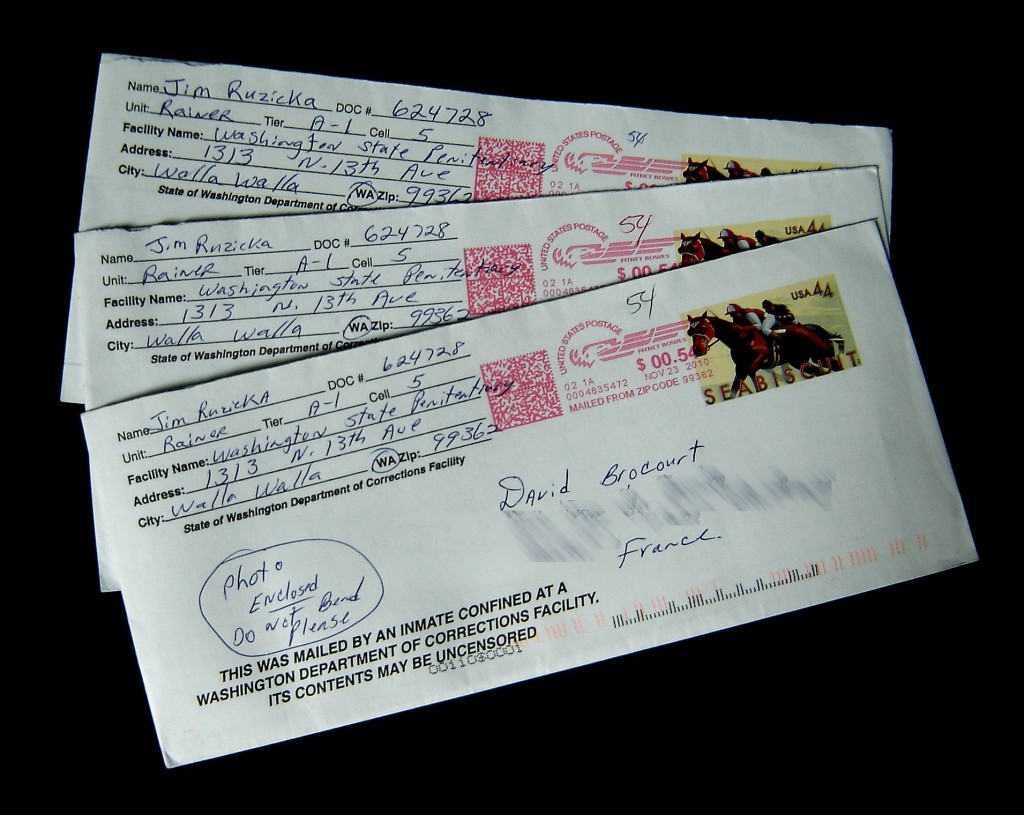 Name Jim Ruzicka DOC # 624728
Unit: Rainer Tier A-1 Cell 5
Facility Name: Washington State Penitentiary
Address: 1313 N. 13th Ave
City: Walla Walla WA Zip: 99362
State of Washington Department of Corre
UNITED STATES POSTAGE
PITNEY BOWES
54
02 1A
$ 0
Name Jim Ruzicka DOC # 624728
Unit: Rainer Tier A-1 Cell 5
Facility Name: Washington State Penitentiary
Address: 1313 N. 13th Ave
City: Walla Walla WA Zip: 99362
State of Washington Department of Correcti
UNITED STATES POSTAGE
PITNEY BOWES
54
02 1A
$ 00.54
0004635
USA 44
Name Jim Ruzicka DOC # 624728
Unit: Rainer Tier A-1 Cell 5
Facility Name: Washington State Penitentiary
Address: 1313 N. 13th Ave
City: Walla Walla WA Zip: 99362
State of Washington Department of Corrections Facility
UNITED STATES POSTAGE
PITNEY BOWES
54
02 1A $ 00.54
0004635472 NOV 23 2010
MAILED FROM ZIP CODE 99362
USA 44
SEABISCUIT
David Brocourt
France
photo
Enclosed
Do Not Bend
Please
THIS WAS MAILED BY AN INMATE CONFINED AT A
WASHINGTON DEPARTMENT OF CORRECTIONS FACILITY.
ITS CONTENTS MAY BE UNCENSORED